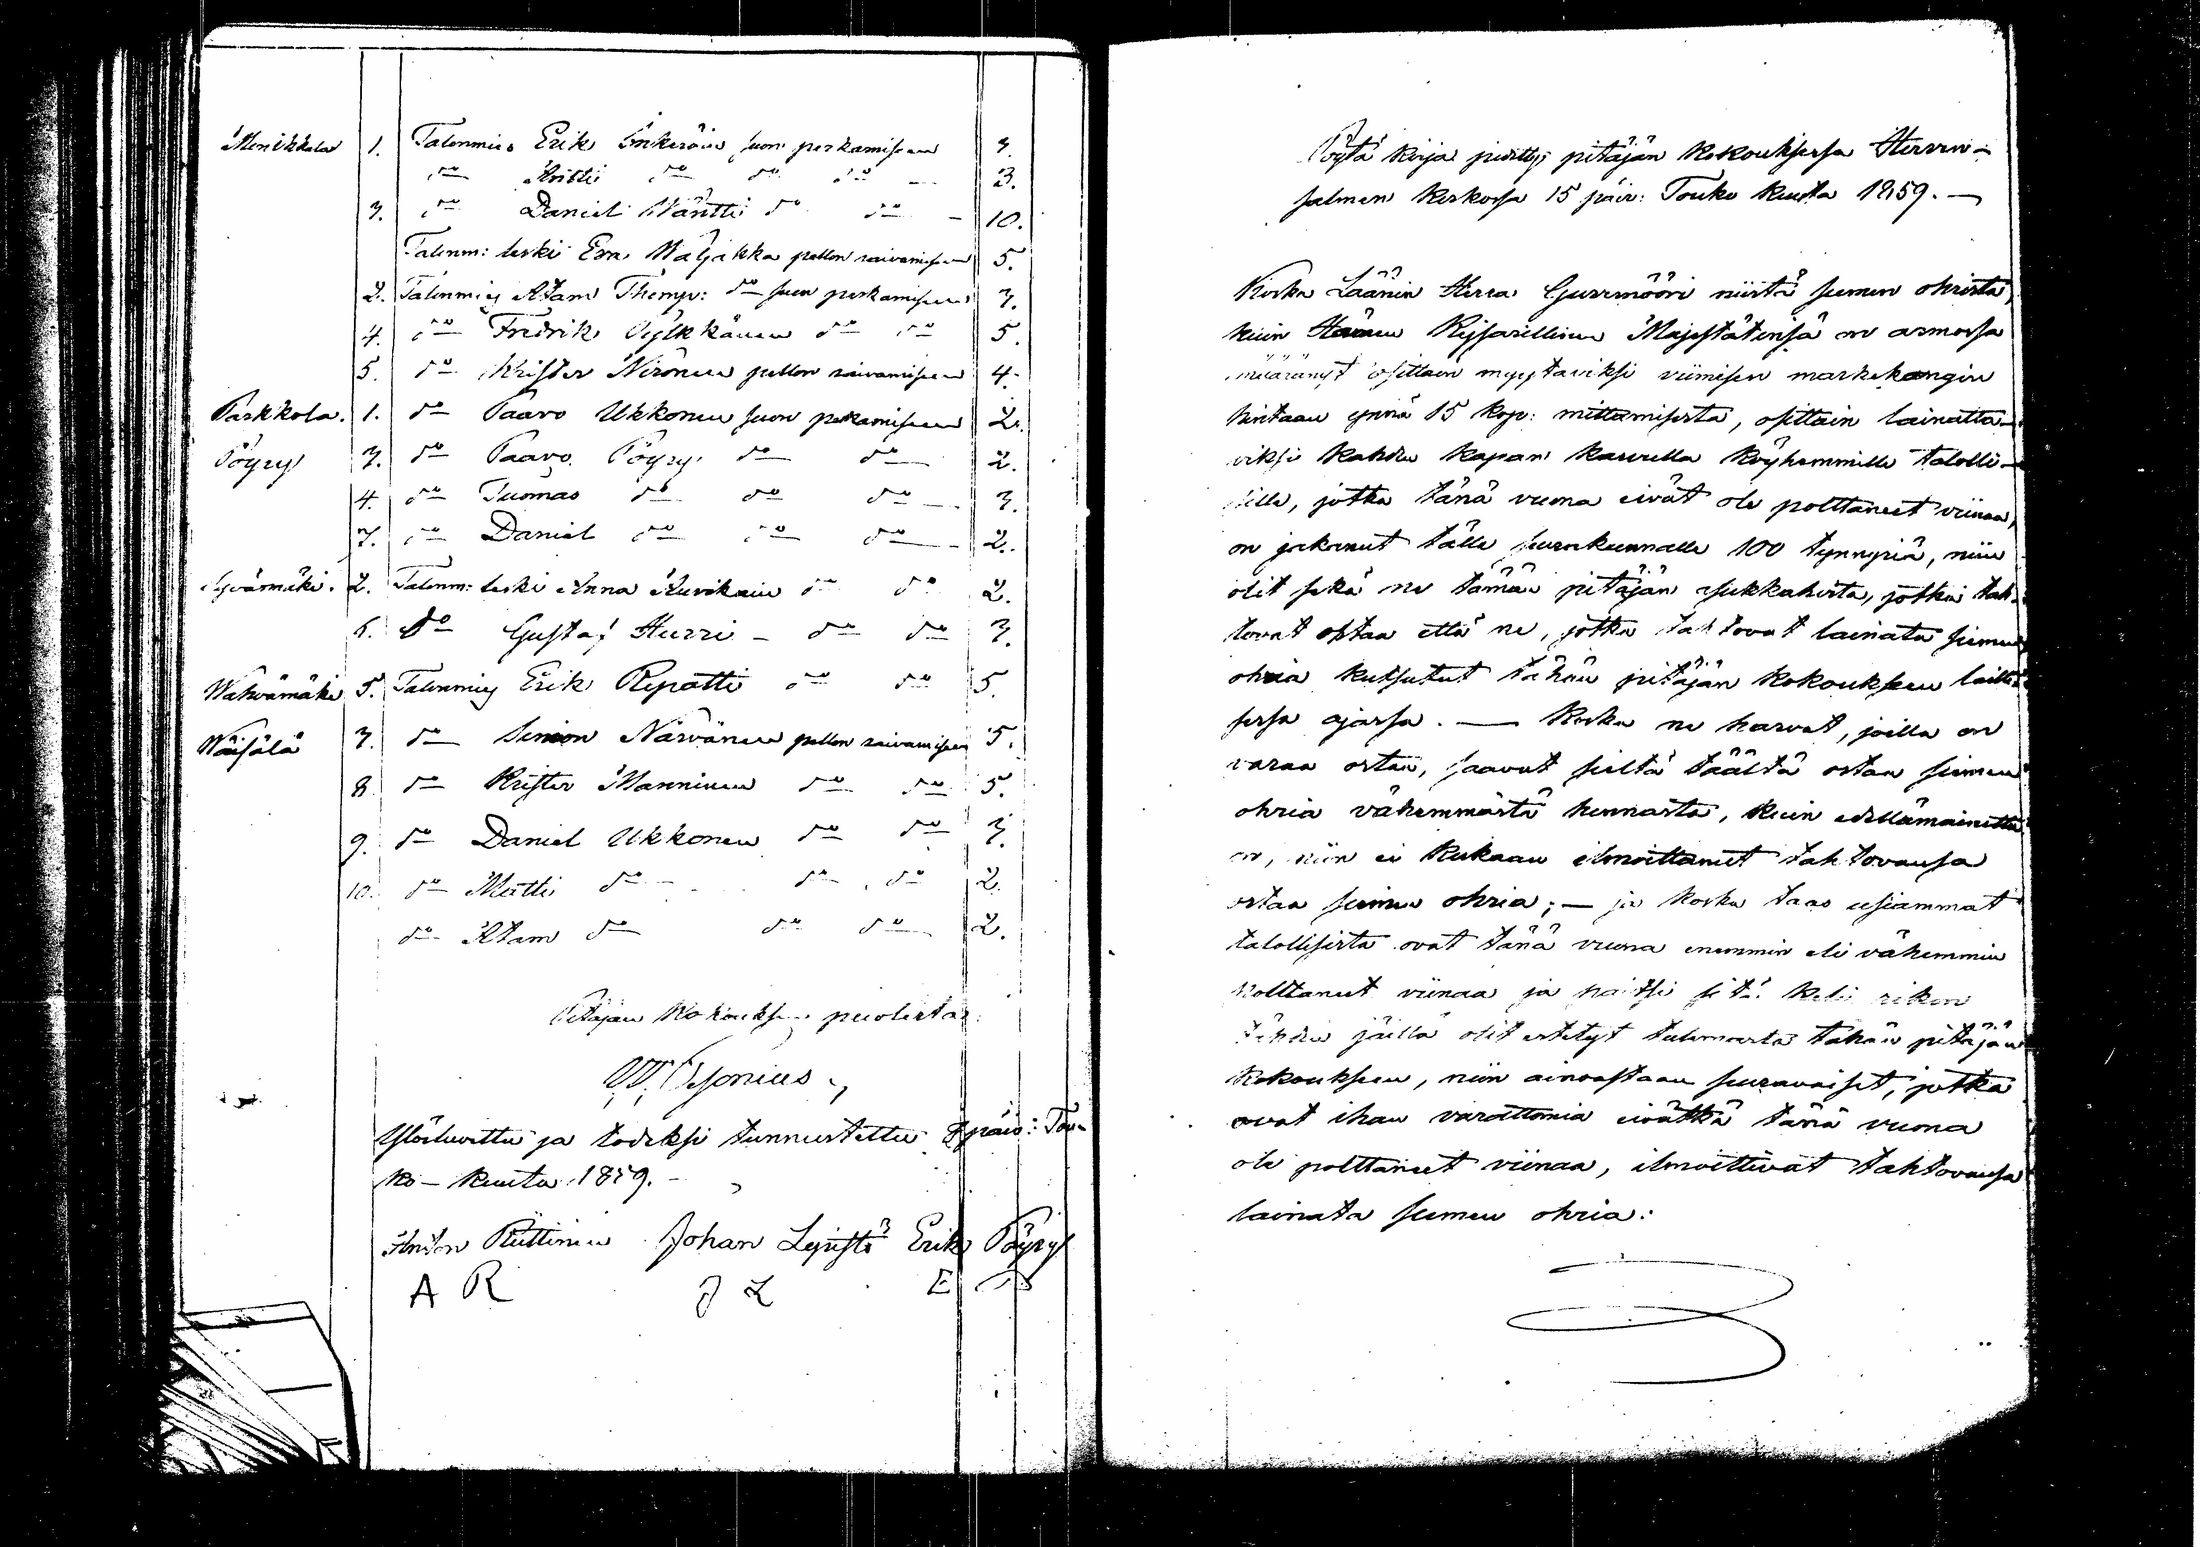 Menikkala 1. Talonmies Erik Inkeröin suon perkamiseen 3.
do Antti do do do — 3.
3. do Daniel Wäntti do do — 10.
Talonm: leski Eva Waljakka pellon raivamiseen 5.
2. Talonmies Adam Thomp: do suon perkamiseen 3.
4. do Fredrik Pylkkänen do do 5.
5. do Krister Nironen pellon raivamiseen 4.
Parkkola. 1. do Paavo Ukkonen suon perkamiseen 2.
Pöyry 3. do Paavo Pöyry do do 2.
4. do Tuomas do do do — 3.
7. do Daniel do do do — 2.
Syvänmäki. 2. Talonm: leski Anna Kuvikain do do 2.
6. do Gustaf Hurri — do do 3.
Wahvamäki 5. Talonmies Erik Repatti do do 5.
Wäisälä 7. do Simon Närvänen pellon raivamiseen 5.
8. do Krister Manninen do do 5.
9. do Daniel Ukkonen do do 3.
10. do Matti do — do do 2.
do Adam do do do 2.
Pitäjän Kokouksen puolesta:
Ylösluettu ja todeksi tunnustettu päiv: Tou-
ko-kuuta 1859.
Anton Riittinen Johan Lyijstö Erik Pöyry
A R J L E P
Pöytä kirja pidetty pitäjän kokouksessa Hirven-
salmen kirkossa 15 päiv: Touko kuuta 1859. —
Koska Läänin Herra Guvernööri niistä siemen ohrista,
kuin Hänen Keisarillinen Majestätensä on armossa
määrännyt osittain myytäviksi viimisen markekangin
hintaan ynnä 15 kop: mittamisesta, osittain lainatta-
viksi kahden kapan kasvulla köyhemmille talolli-
sille, jotka tänä vuona eivät ole polttaneet viinaa,
on jakanut tälle seurakunnalle 100 tynnyriä, niin
olit sekä ne tämän pitäjän asukkahista, jotka tah-
tovat ostaa että ne, jotka tahtovat lainata siemen
ohria kutsutut tähän pitäjän kokoukseen lailli-
sessa ajassa. — Koska ne harvat, joilla on
varaa ostaa, saavat sieltä täältä ostaa siemen
ohria vähemmästä hinnasta, kuin edellämainittu
on, niin ei kukaan ilmoittanut tahtovansa
ostaa siemen ohria; — ja koska taas usiammat
talollisista ovat tänä vuona enemmin eli vähemmin
polttaneet viinaa ja paitsi sitä keli rikon
tähden jäillä olit estetyt tulemasta tähän pitäjän
kokoukseen, niin ainoastaan seuravaiset, jotka
ovat ihan varattomia eivätkä tänä vuona
ole polttaneet viinaa, ilmoittivat tahtovansa
lainata siemen ohria: